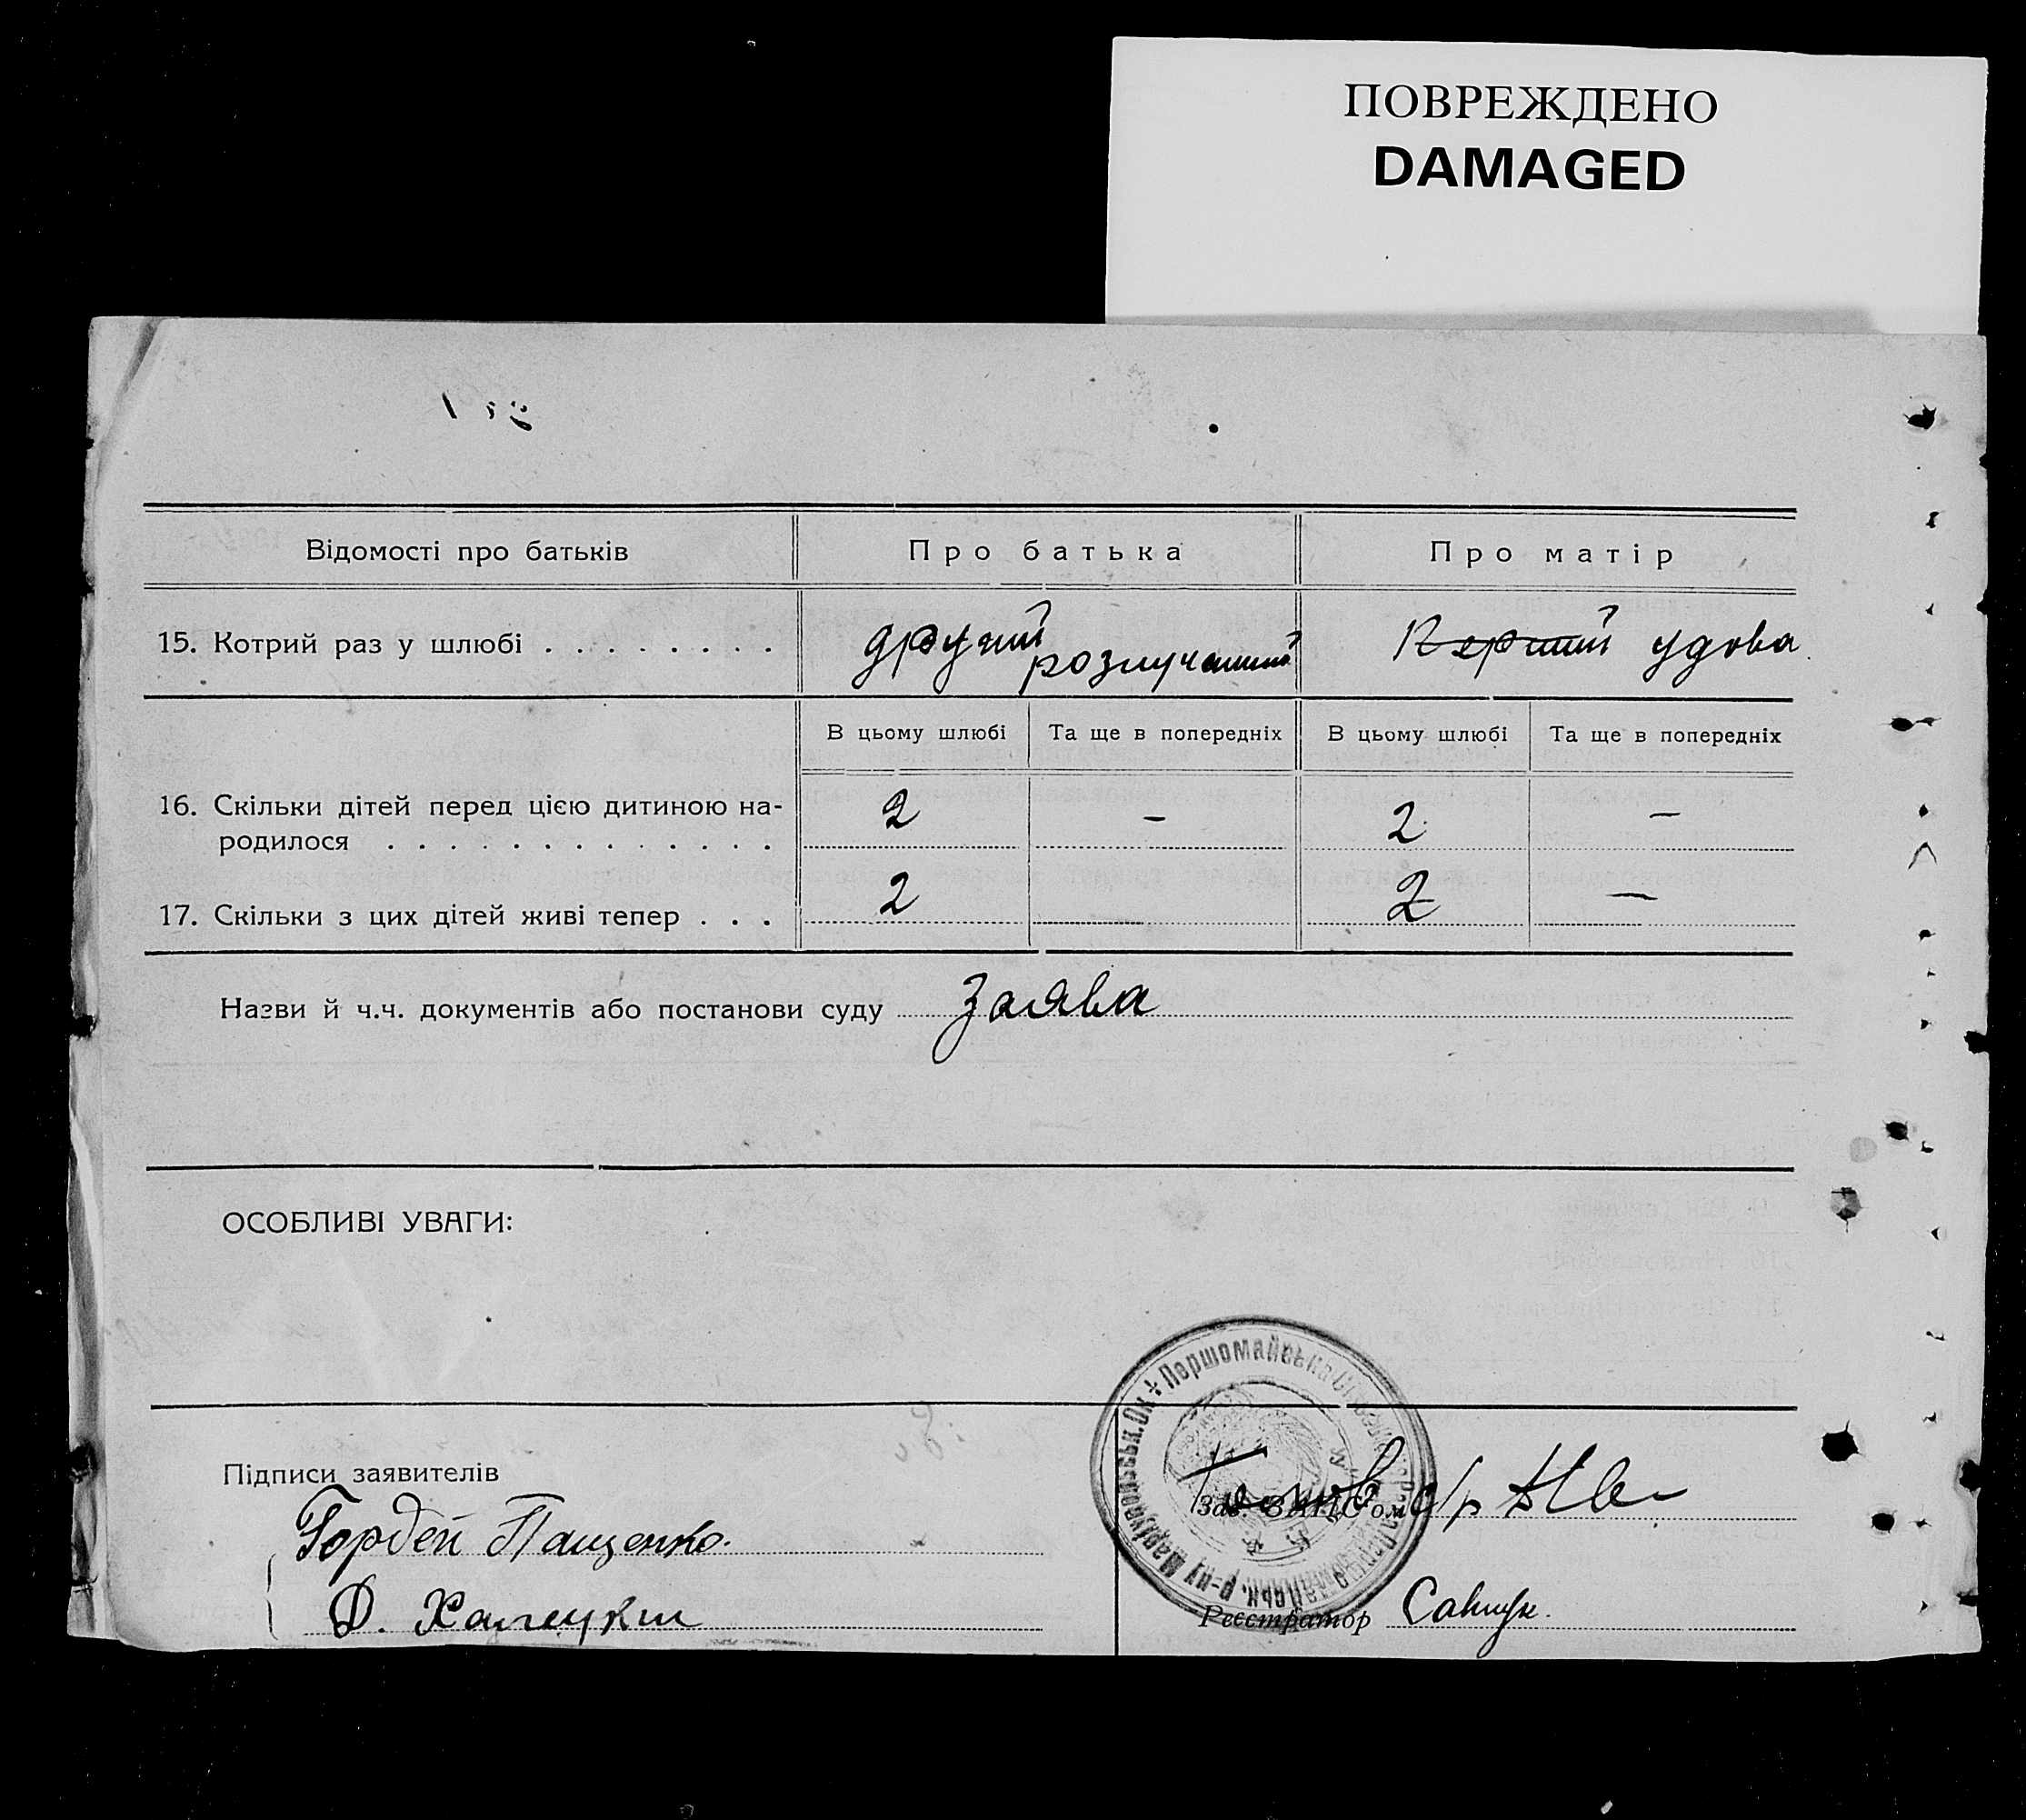 ПОВРЕЖДЕНО
DAMAGED
Відомості про батьків
Про батька
Про матір
15. Котрий раз у шлюбі . . . . . . . .
другий розлучений
Перший удова
В цьому шлюбі
Та ще в попередніх
В цьому шлюбі
Та ще в попередніх
16. Скільки дітей перед цією дитиною на-
родилося . . . . . . . . . . . . .
2
–
2
–
17. Скільки з цих дітей живі тепер . . .
2
2
—
Назви й ч.ч. документів або постанови суду Заява
ОСОБЛИВІ УВАГИ:
Першомайська Сільська Рада Першомайськ. р-ну Маріупольськ. Ок.
Підписи заявителів
Гордей Пащенко.
Зав. ЗАГС'ом
Голова с/р
Реєстратор